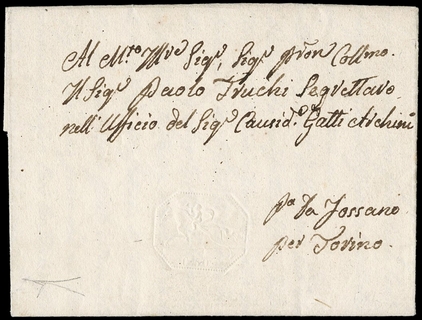 Al M.to Ill.re Sig.r, Sig.r Pron Collmo.
Il Sig.r Paolo Truchi Segrettaro
nell' Ufficio del Sig.r Causid.co Gatti Archini
P.a Da Fossano
per Torino.